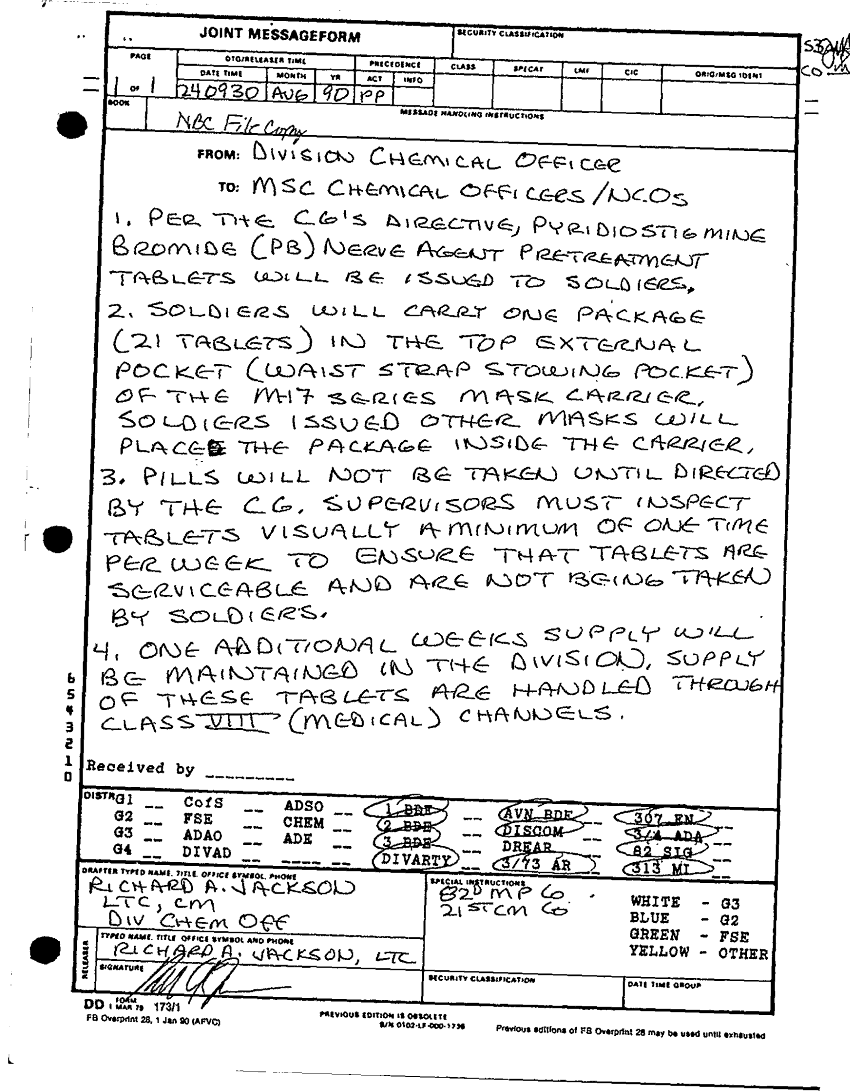 JOINT MESSAGEFORM
SECURITY CLASSIFICATION
PAGE
DTG/RELEASER TIME
PRECEDENCE
CLASS
SPECAT
LMF
CIC
ORIG/MSG IDENT
DATE TIME
MONTH
YR
ACT
INFO
1 OF 1
240930
AUG
90
PP
BOOK
MESSAGE HANDLING INSTRUCTIONS
NBC File Copy
FROM: DIVISION CHEMICAL OFFICER
TO: MSC CHEMICAL OFFICERS/NCOS
1. PER THE CG'S DIRECTIVE, PYRIDIOSTIGMINE
BROMIDE (PB) NERVE AGENT PRETREATMENT
TABLETS WILL BE ISSUED TO SOLDIERS.
2. SOLDIERS WILL CARRY ONE PACKAGE
(21 TABLETS) IN THE TOP EXTERNAL
POCKET (WAIST STRAP STOWING POCKET)
OF THE M17 SERIES MASK CARRIER.
SOLDIERS ISSUED OTHER MASKS WILL
PLACE THE PACKAGE INSIDE THE CARRIER.
3. PILLS WILL NOT BE TAKEN UNTIL DIRECTED
BY THE CG. SUPERVISORS MUST INSPECT
TABLETS VISUALLY A MINIMUM OF ONE TIME
PER WEEK TO ENSURE THAT TABLETS ARE
SERVICEABLE AND ARE NOT BEING TAKEN
BY SOLDIERS.
4. ONE ADDITIONAL WEEKS SUPPLY WILL
BE MAINTAINED IN THE DIVISION. SUPPLY
OF THESE TABLETS ARE HANDLED THROUGH
CLASS VIII (MEDICAL) CHANNELS.
6
5
4
3
2
1
0
Received by _________
DISTR
G1 __ CofS __ ADSO __ 1 BDE __ AVN BDE __ 307 EN __
G2 __ FSE __ CHEM __ 2 BDE __ DISCOM __ 3/4 ADA __
G3 __ ADAO __ ADE __ 3 BDE __ DREAR __ 82 SIG __
G4 __ DIVAD __ ____ __ DIVARTY __ 3/73 AR __ 313 MI __
DRAFTER TYPED NAME, TITLE, OFFICE SYMBOL, PHONE
RICHARD A. JACKSON
LTC, CM
DIV CHEM OFF
SPECIAL INSTRUCTIONS
82D MP Co
21ST CM Co
WHITE - G3
BLUE - G2
GREEN - FSE
YELLOW - OTHER
RELEASER
TYPED NAME, TITLE, OFFICE SYMBOL AND PHONE
RICHARD A. JACKSON, LTC
SIGNATURE
SECURITY CLASSIFICATION
DATE TIME GROUP
DD FORM 1 MAR 79 173/1
FB Overprint 28, 1 Jan 90 (AFVC)
PREVIOUS EDITION IS OBSOLETE
S/N 0102-LF-000-1736
Previous editions of FB Overprint 28 may be used until exhausted